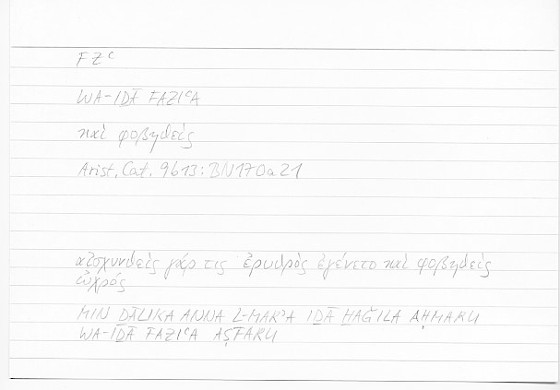 FZʿ
WA-IḎĀ FAZIʿA
καὶ φοβηθείς
Arist. Cat. 9b13: BN170a21
αἰσχυνθεὶς γάρ τις ἐρυθρὸς ἐγένετο καὶ φοβηθεὶς
ὠχρός
MIN ḎĀLIKA ANNA L-MARʾA IḎĀ ḪAǦILA AḤMARU
WA-IḎĀ FAZIʿA AṢFARU